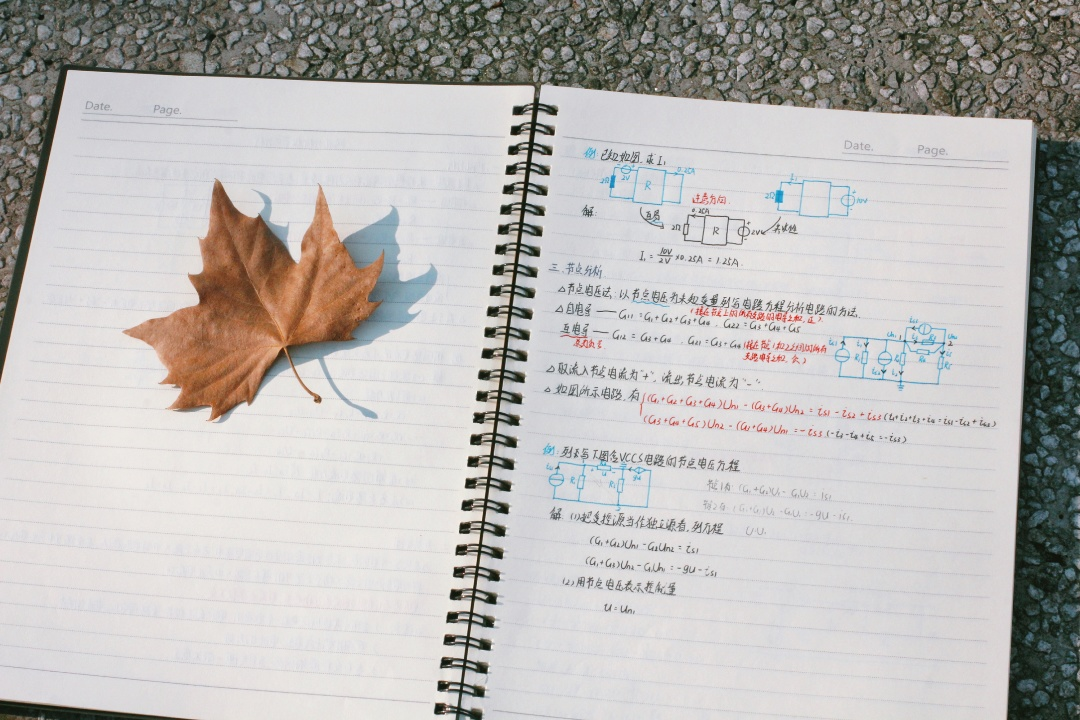 Date. Page.
Date. Page.
例: 已知如图, 求 I₁
2Ω 2V R 0.25A
2Ω I₁ 10V
注意方向.
解: 互易
0.25A
2Ω R 2V
I₁ = 10V/2V × 0.25A = 1.25A.
三. 节点分析
△ 节点电压法: 以节点电压为未知变量列写电路方程分析电路的方法.
△ 自电导 —— G₁₁ = G₁+G₂+G₃+G₄ , G₂₂ = G₃+G₄+G₅
互电导 —— G₁₂ = G₃+G₄ , G₂₁ = G₃+G₄
△ 取流入节点电流为"+", 流出节点电流为"-".
△ 如图所示电路, 有
(G₁+G₂+G₃+G₄)Un₁ - (G₃+G₄)Un₂ = is₁ - is₂ + is₃ (i₁+i₂+i₃+i₄ = is₁-is₂+is₃)
(G₃+G₄+G₅)Un₂ - (G₃+G₄)Un₁ = -is₃ (-i₃-i₄+i₅ = -is₃)
例: 列写下图含VCCS电路的节点电压方程
解: (1) 把受控源当作独立源看, 列方程
(G₁+G₂)Un₁ - G₂Un₂ = is₁
(G₁+G₃)Un₂ - G₁Un₁ = -gu - is₁
(2) 用节点电压表示控制量
u = Un₁